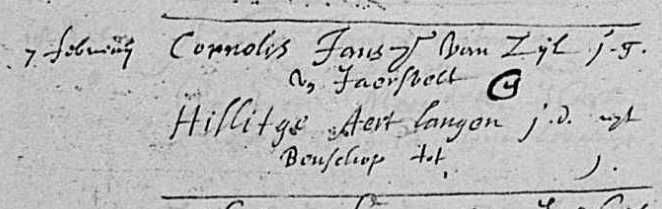 7 februarij Cornelis Jansz van Zijl j.g.
vt Jaersvelt
Hillitge Aert langen j.d. uyt
Benschop tot